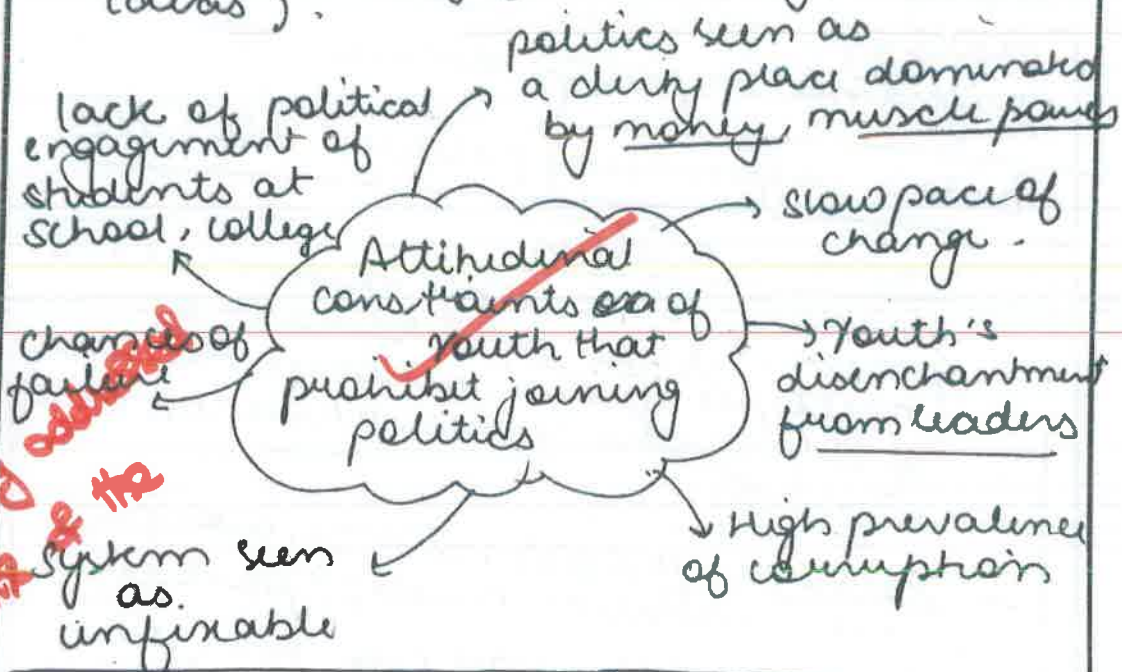 politics seen as
a dirty place dominated
by money, muscle power
lack of political
engagement of
students at
school, college
slow pace of
change.
Attitudinal
constraints of
youth that
prohibit joining
politics
chances of
failure
Youth's
disenchantment
from leaders
addressed
the
High prevalence
of corruption
system seen
as
unfixable